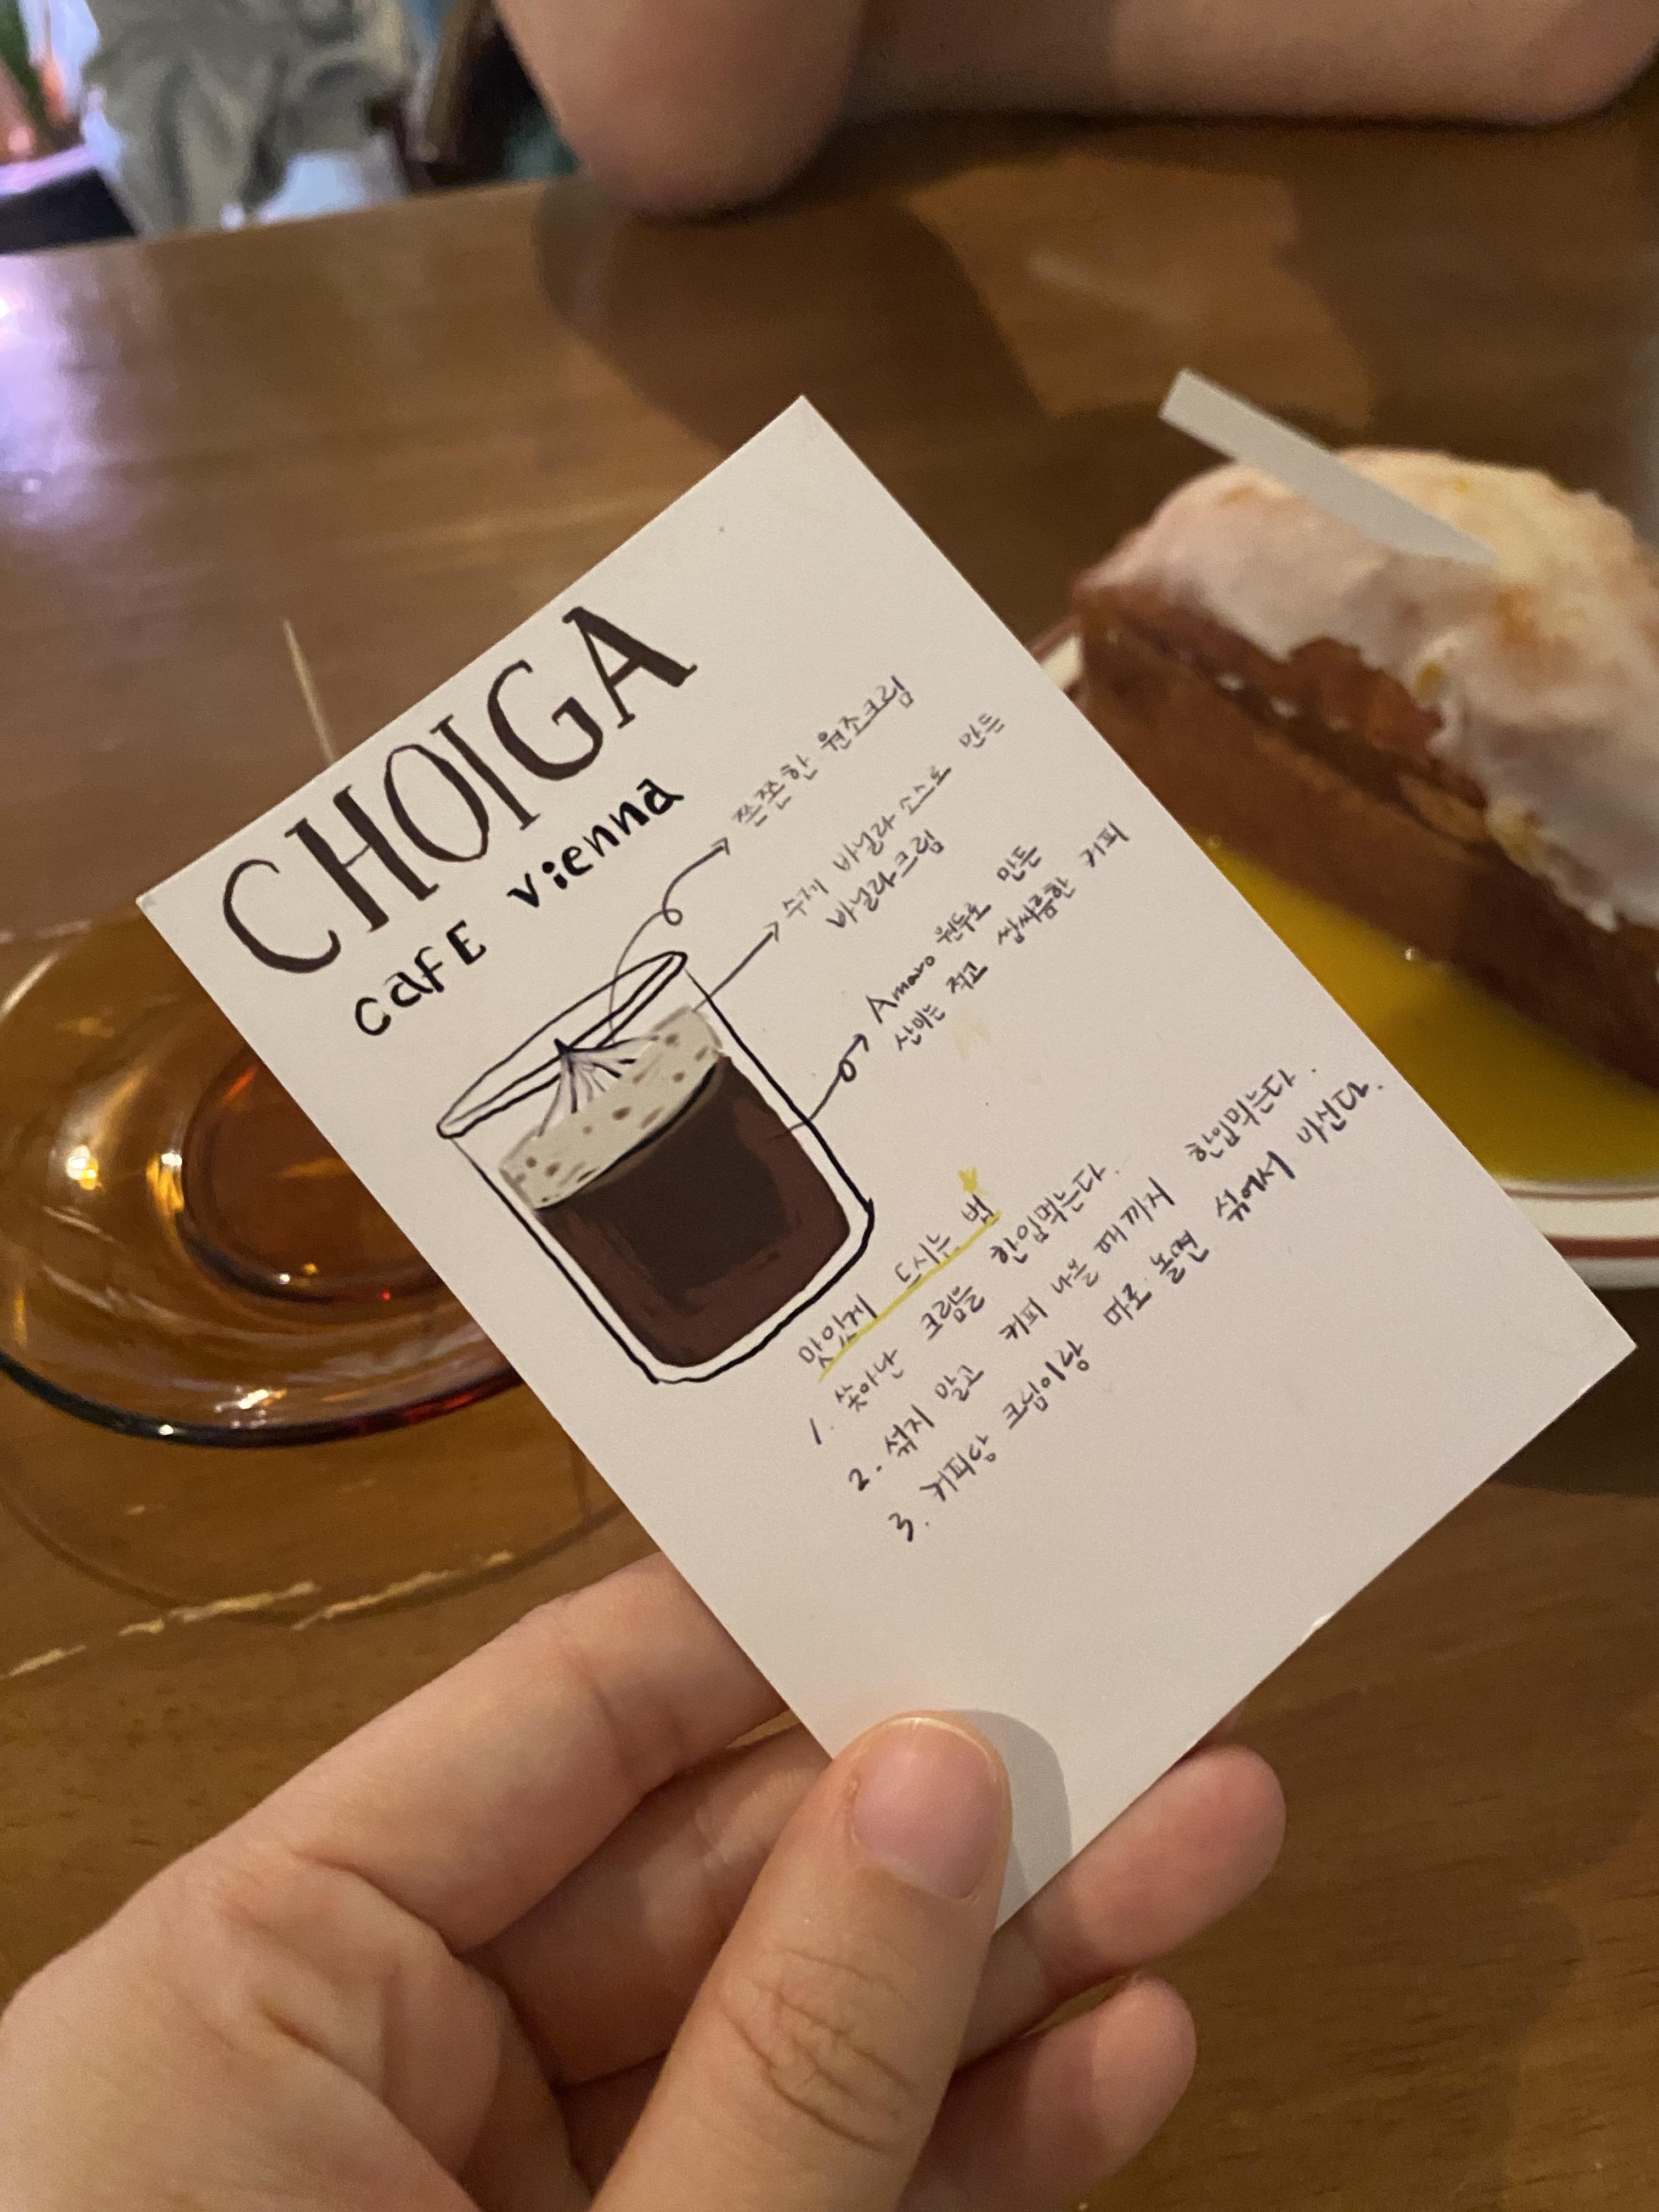 CHOIGA
cafE vienna
쫀쫀한 원조크림
수제 바닐라 소스로 만든
바닐라크림
Amaro 원두로 만든
산미는 적고 쌉싸름한 커피
맛있게 드시는 법
1. 솟아난 크림을 한입먹는다.
2. 섞지 말고 커피 나올 때까지 한입먹는다.
3. 커피랑 크림이랑 따로 놀면 섞어서 마신다.